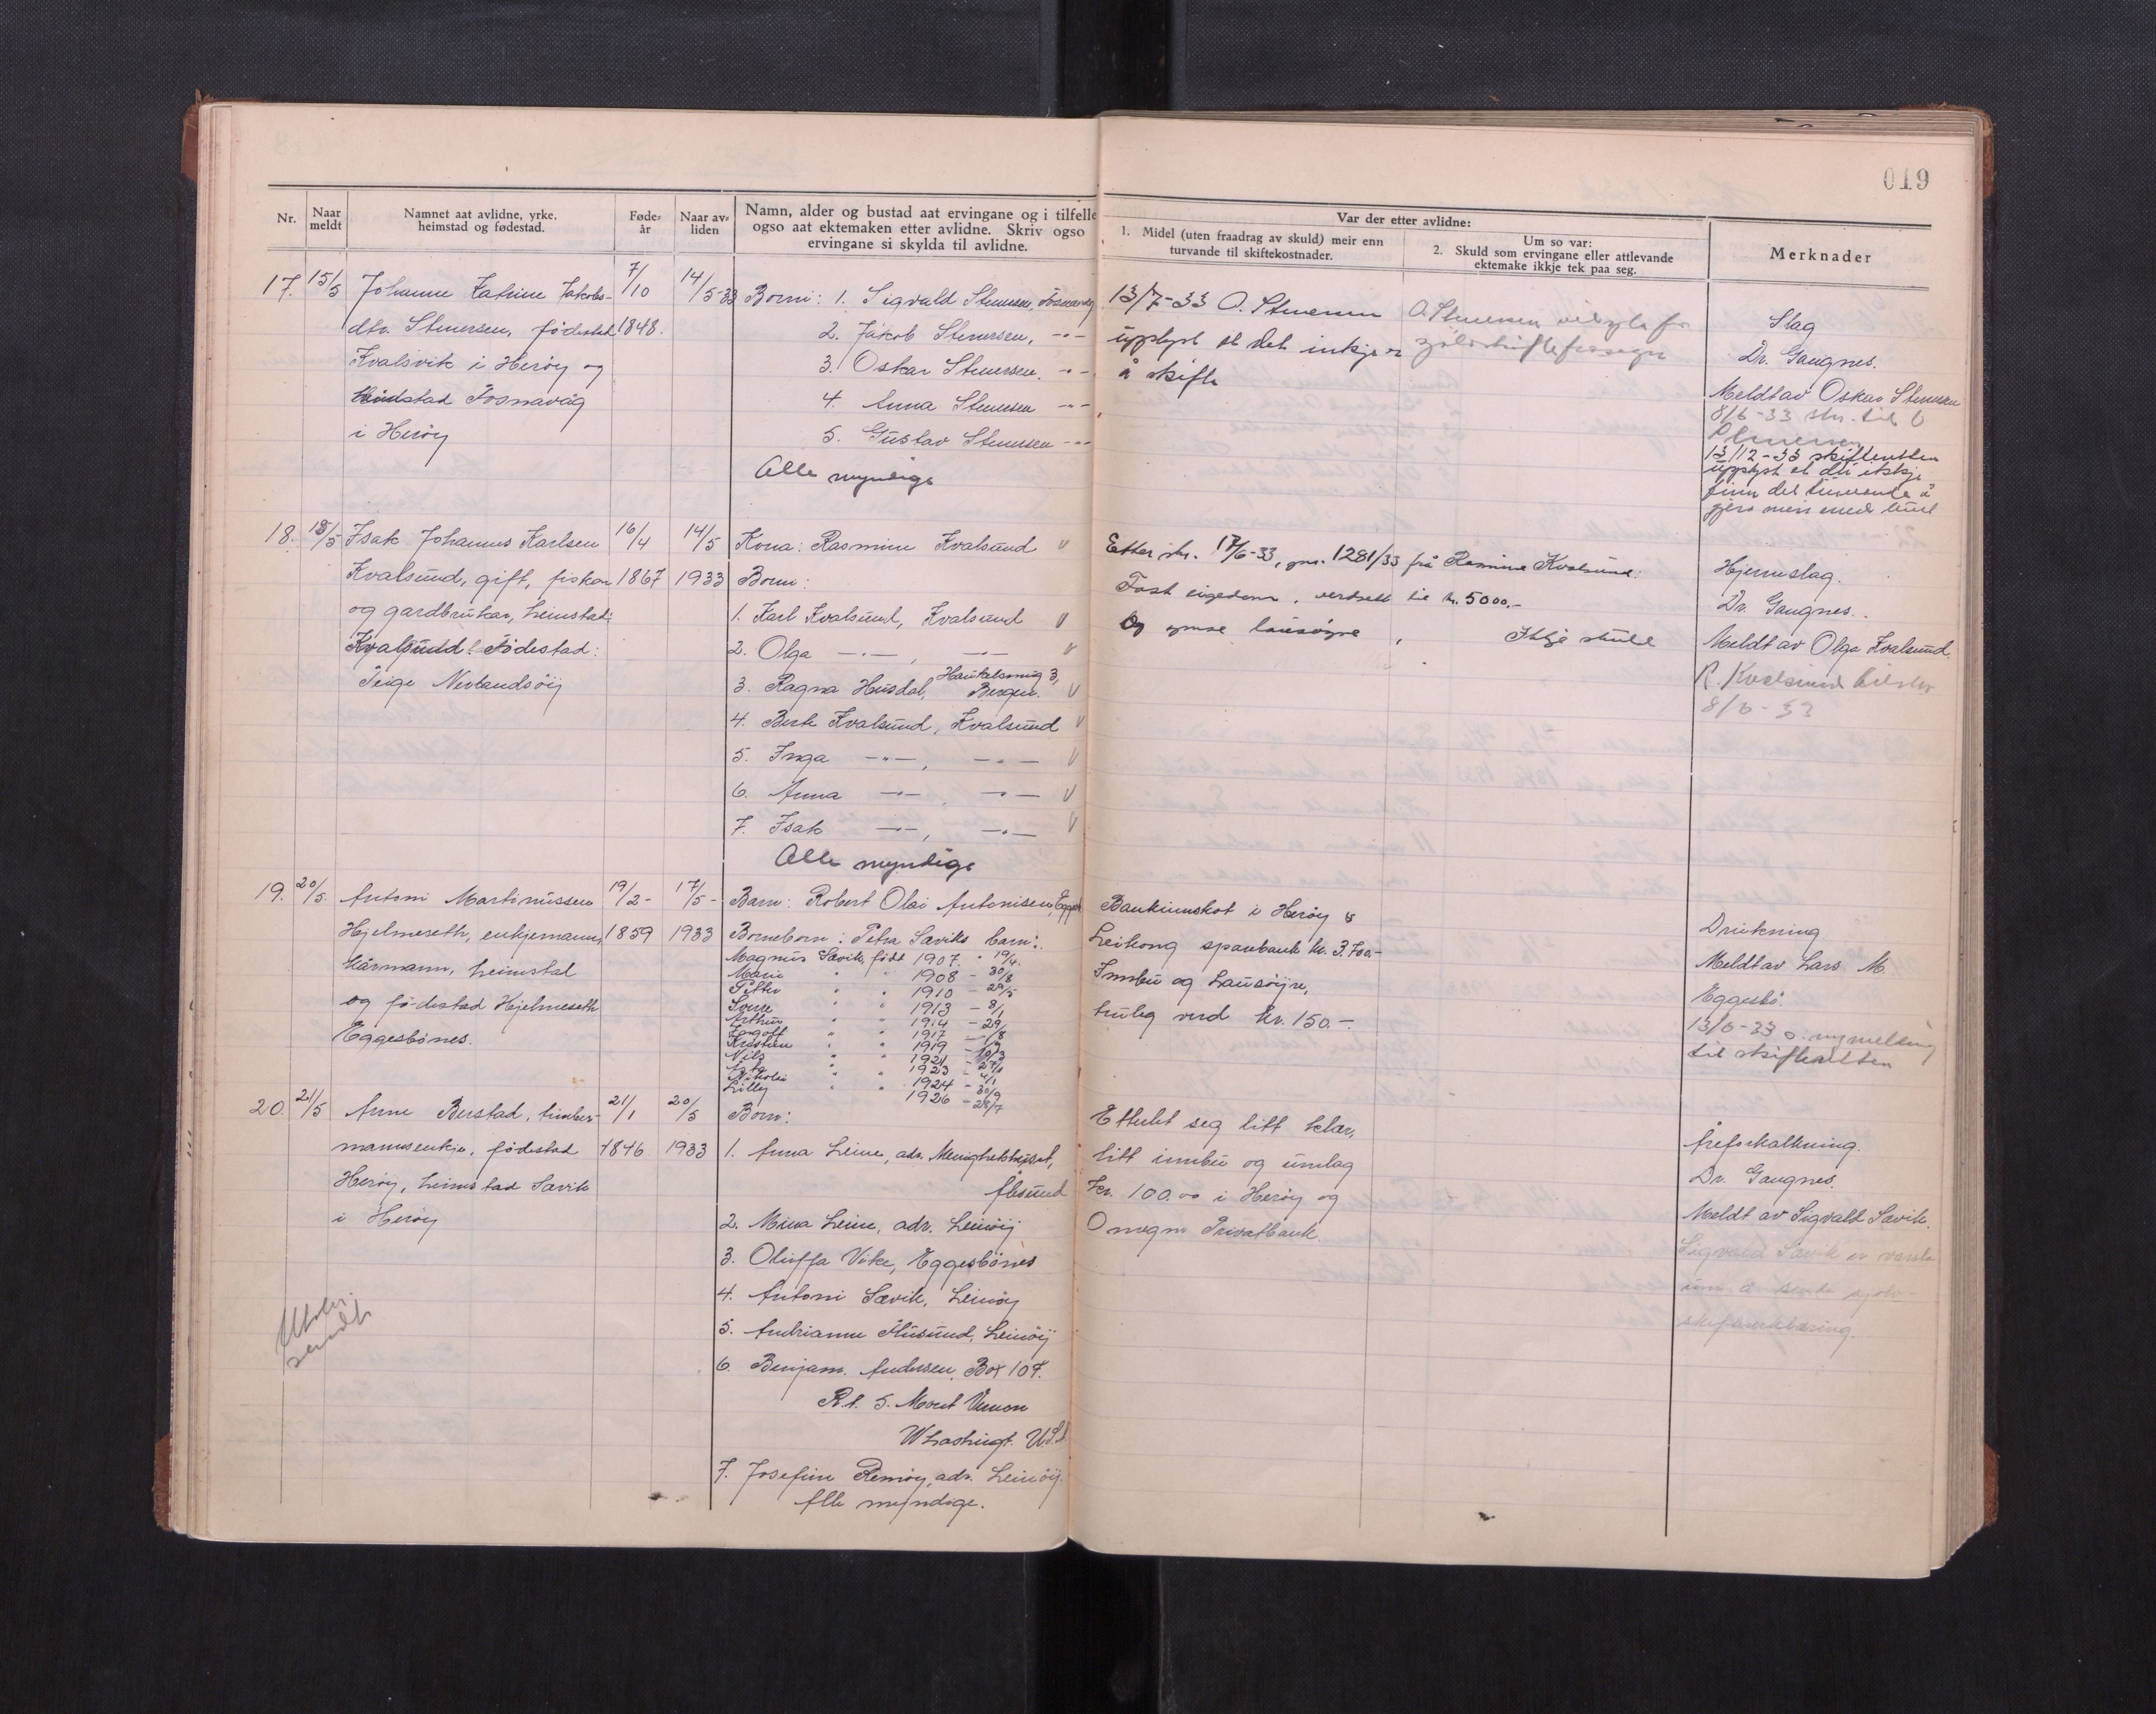 019
Nr.
Naar
meldt
Namnet aat avlidne, yrke,
heimstad og fødestad.
Føde-
år
Naar av-
liden
Namn, alder og bustad aat ervingane og i tilfelle
ogso aat ektemaken etter avlidne. Skriv ogso
ervingane si skylda til avlidne.
Var der etter avlidne:
1. Midel (uten fraadrag av skuld) meir enn
turvande til skiftekostnader.
Um so var:
2. Skuld som ervingane eller attlevande
ektemake ikkje tek paa seg.
Merknader
17. 15/5 Johanne Katrine Jakobs-
dtr. Stenersen, fødestad
Kvalsvik i Herøy og
Heimstad Fosnavåg
i Herøy
7/10
1848.
14/5-33
Born: 1. Sigvald Stenersen, Fosnavåg
2. Jakob Stenersen, -"-
3. Oskar Stenersen. -"-
4. Anna Stenersen -"-
5. Gustav Stenersen -"-
Alle myndige
13/7-33 O. Stenersen
upplyst at det inkje er
å skifte
O. Stenersen
Slag
Dr. Gaugnes.
Meldt av Oskar Stenersen
8/6-33 skr. til O
Stenersen
13/12-33 skifteretten
upplyst at dei ikkje
finn det turvande å
gjera meir med buet
18. 18/5 Isak Johannes Karlsen
Kvalsund, gift, fiskar
og gardbrukar, heimstad:
Kvalsund. Fødestad:
Teige Nerlandsöy
16/4
1867
14/5
1933
Kona: Rasmine Kvalsund v
Born:
1. Karl Kvalsund, Kvalsund v
2. Olga -"-, -"- v
3. Ragna Husdal, Haukelsmug 3, Bergen. v
4. Berte Kvalsund, Kvalsund v
5. Inga -"-, -"- v
6. Anna -"-, -"- v
7. Isak -"-, -"- v
Alle myndige
Etter skr. 17/6-33, jnr. 1281/33 frå Rasmine Kvalsund:
Fast eigedom, verdsett til kr. 5000,-
Og ymse lausøyre, Ikkje skuld
Hjerneslag.
Dr. Gaugnes.
Meldt av Olga Kvalsund
R. Kvalsund tilskr
8/6-33
19. 20/5. Antoni Martinussen
Hjelmeseth, enkjemann,
kårmann, heimstad
og fødestad Hjelmeseth
Eggesbønes.
19/2-
1859
17/5-
1933
Barn: Robert Olai Antonisen, Egges
Borneborn: Petra Sæviks barn:
Magnus Sævik, født 1907. " 19/4.
Marie " " 1908 - 30/8
Petter " " 1910 - 29/5
Sverre " " 1913 - 8/1
Arthur " " 1914 - 29/
" " 1917
Kristian " " 1919
Nils " " 1921
" " 1923
Nikolai " " 1924 - 30/9
Lilly " " 1926 - 28/7
Bankinnskot i Herøy &
Leikong sparebank kr. 3.700.-
Innbu og Lausøyre,
truleg verd kr. 150.-
Drukning
Meldt av Lars M
Eggesbö.
13/6-33 s. nymelding
til skifteretten
20. 21/5 Anne Berstad, timber-
mannsenkje, fødestad
Herøy, heimstad Sævik
i Herøy
21/1
1846
20/5
1933
Born:
1. Anna Leine, adr. Menighetshuset,
Ålesund
2. Mina Leine, adr. Leinöy
3. Oluffa Vike, Eggesbönes
4. Antoni Sævik, Leinöy
5. Andrianne Husund, Leinöy
6. Benjam. Andersen, Box 107.
R.t. 5. Mont Vernon
Whashingt. U.S.A.
7. Josefine Remøy, adr. Leinöy.
Alle myndige.
Etterlet seg litt klær,
litt innbu og umlag
Kr. 100.00 i Herøy og
Omegns Privatbank.
Åreforkalkning.
Dr. Gaugnes.
Meldt av Sigvald Sævik.
Sigvald Sævik er varsla
um å sende sjølv-
skifteerklæring.
sendt